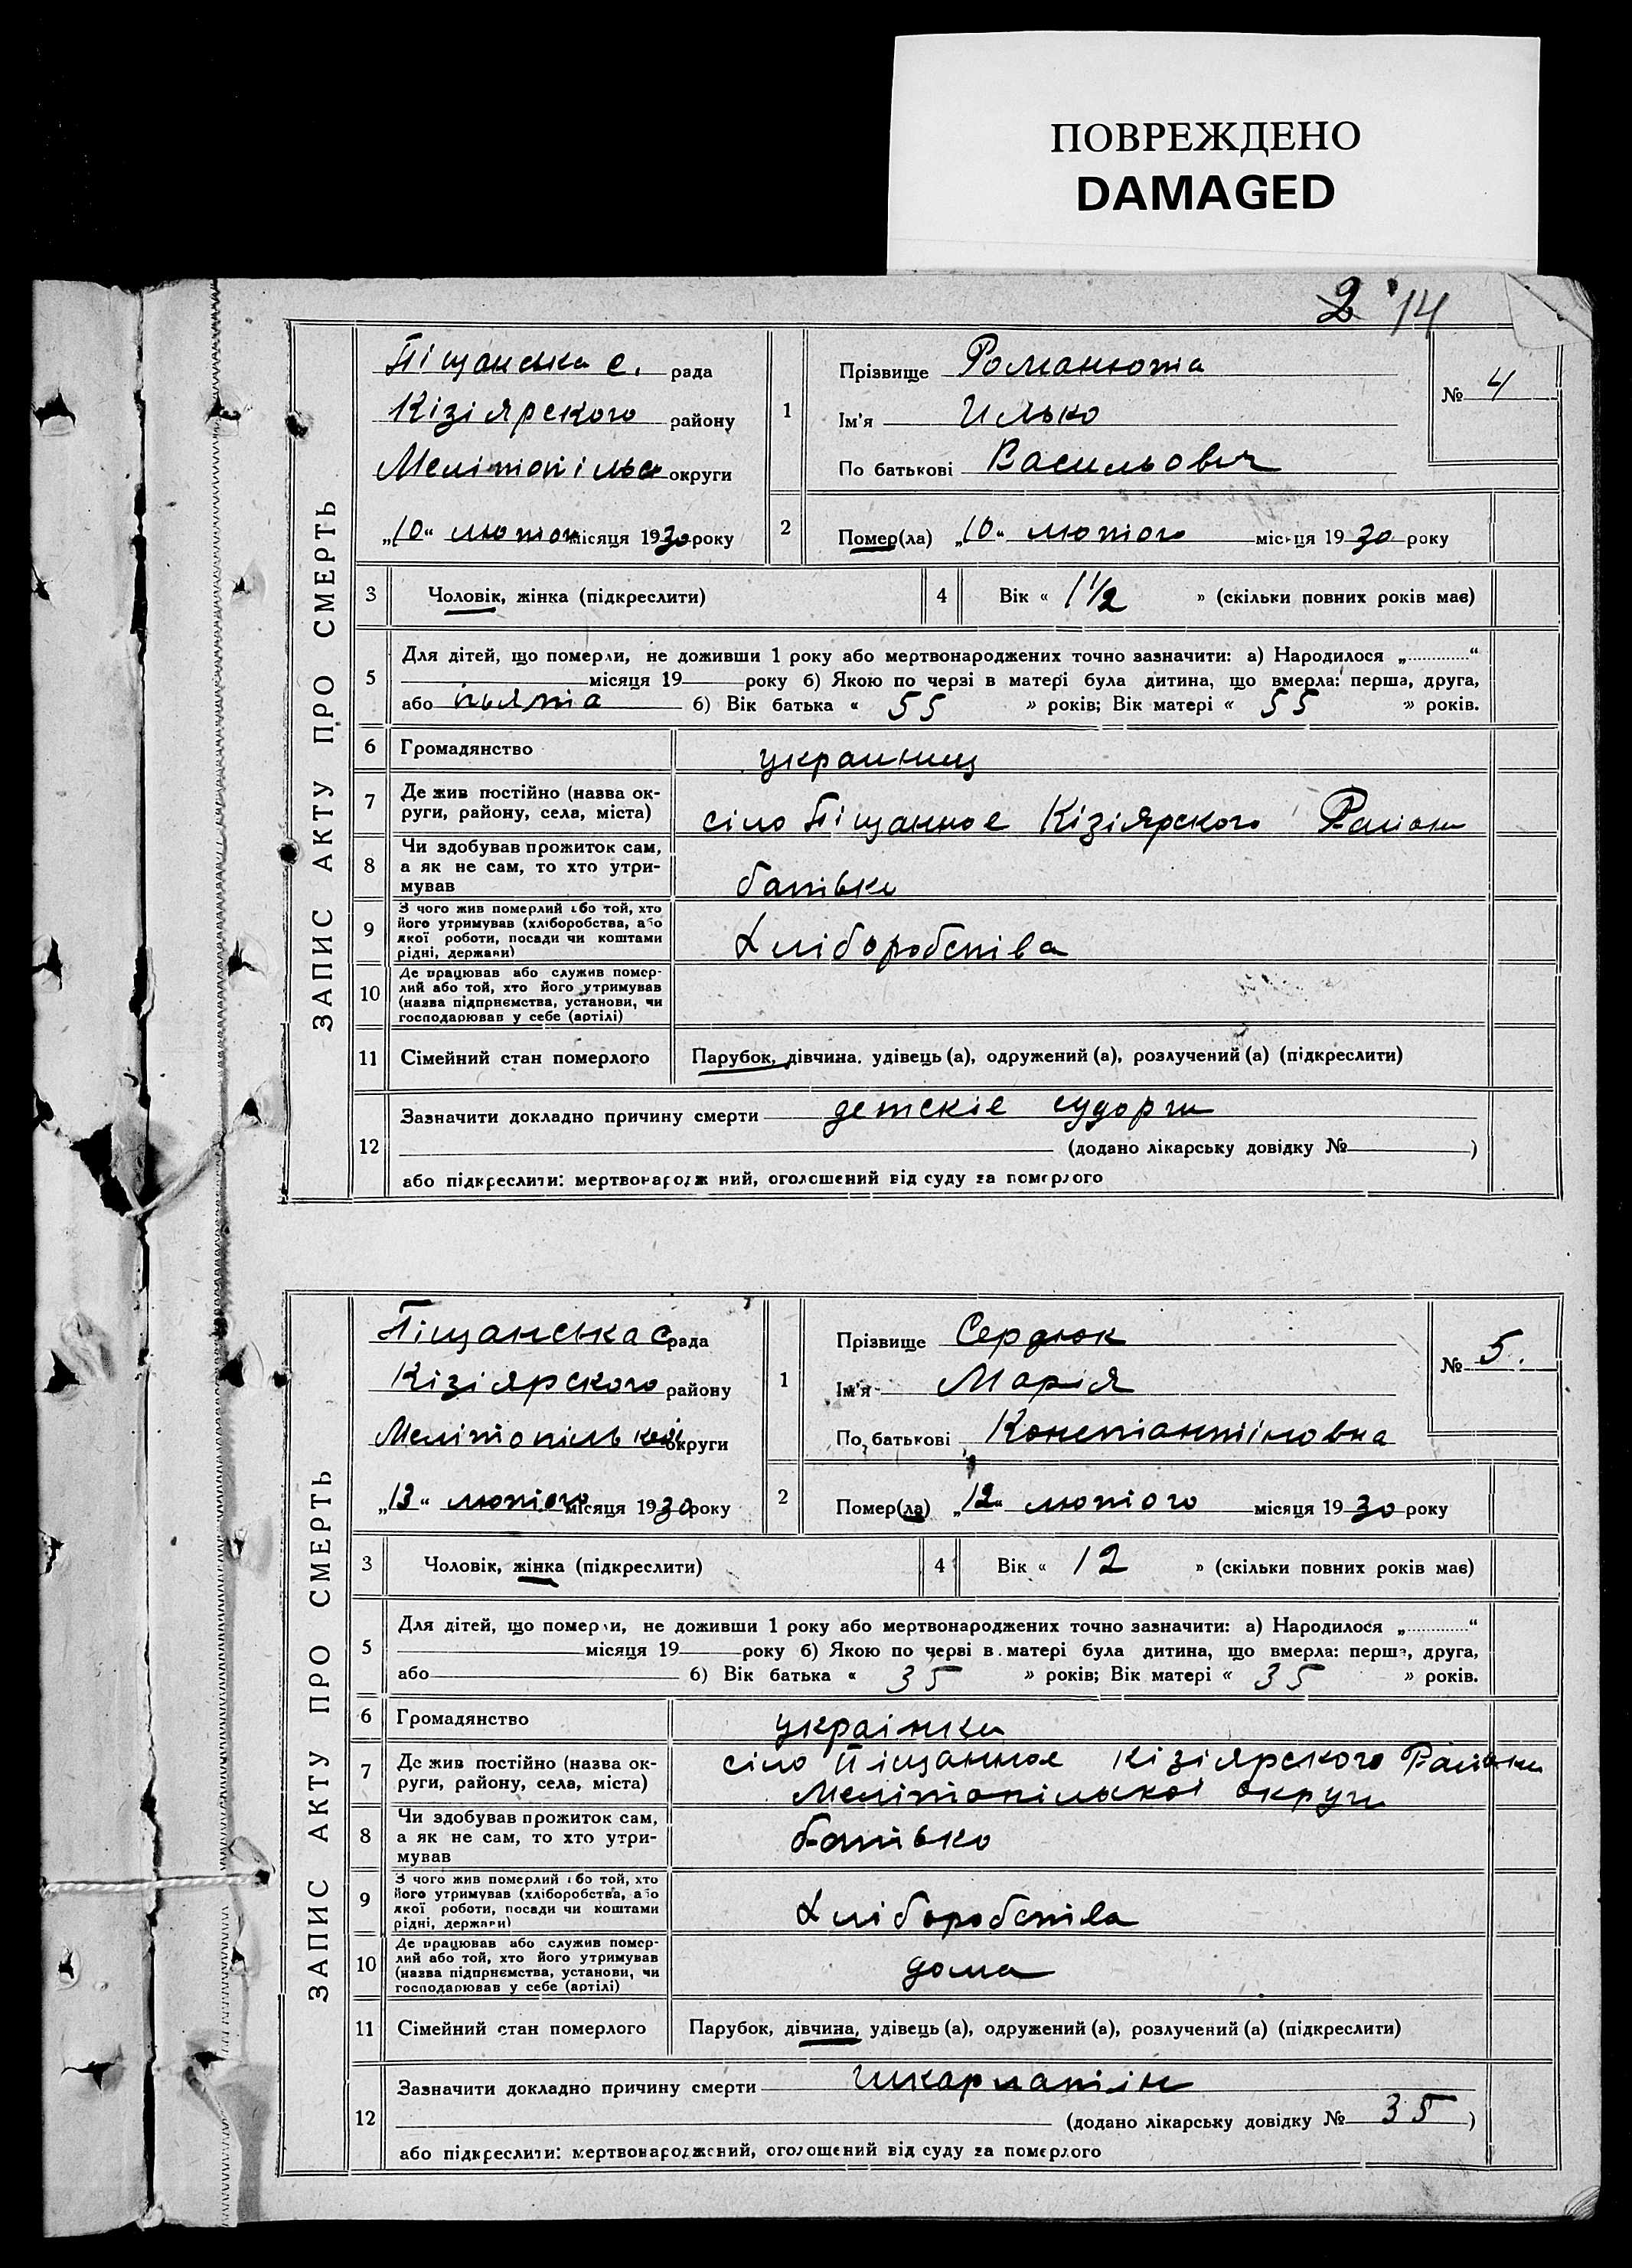 ПОВРЕЖДЕНО
DAMAGED
2 14
ЗАПИС АКТУ ПРО СМЕРТЬ
Піщанська с. рада
Кізіярского району
Мелітопільсь округи
„10“ лютого місяця 1930 року
1
Прізвище Романюта
Ім'я Илько
По батькові Васильович
№ 4
2
Помер(ла) „10“ лютого місяця 1930 року
3 Чоловік, жінка (підкреслити)
4 Вік « 1½ » (скільки повних років має)
5
Для дітей, що померли, не доживши 1 року або мертвонароджених точно зазначити: а) Народилося „............“
місяця 19 року б) Якою по черзі в матері була дитина, що вмерла: перша, друга,
або пьята б) Вік батька « 55 » років; Вік матері « 55 » років.
6 Громадянство украинец
7 Де жив постійно (назва ок-
руги, району, села, міста)
сіло Піщанное Кізіярского Району
8 Чи здобував прожиток сам,
а як не сам, то хто утри-
мував
батько
9 З чого жив померлий або той, хто
його утримував (хліборобства, або
якої роботи, посади чи коштами
рідні, держави)
Хліборобства
10 Де працював або служив помер-
лий або той, хто його утримував
(назва підприємства, установи, чи
господарював у себе (артілі)
11 Сімейний стан померлого Парубок, дівчина, удівець (а), одружений (а), розлучений (а) (підкреслити)
12
Зазначити докладно причину смерти детскіе судорги
(додано лікарську довідку № )
або підкреслити: мертвонароджений, оголошений від суду за померлого
ЗАПИС АКТУ ПРО СМЕРТЬ
Піщанська с рада
Кізіярского району
Мелітопільської округи
„13“ лютого місяця 1930 року
1
Прізвище Сердюк
Ім'я Марія
По батькові Констянтіновна
№ 5.
2
Помер(ла) „12“ лютого місяця 1930 року
3 Чоловік, жінка (підкреслити)
4 Вік « 12 » (скільки повних років має)
5
Для дітей, що померли, не доживши 1 року або мертвонароджених точно зазначити: а) Народилося „............“
місяця 19 року б) Якою по черзі в матері була дитина, що вмерла: перша, друга,
або б) Вік батька « 35 » років; Вік матері « 35 » років.
6 Громадянство українка
7 Де жив постійно (назва ок-
руги, району, села, міста)
сіло Піщанное Кізіярского Району
Мелітопільскої округи
8 Чи здобував прожиток сам,
а як не сам, то хто утри-
мував
батько
9 З чого жив померлий або той, хто
його утримував (хліборобства, або
якої роботи, посади чи коштами
рідні, держави)
Хліборобства
10 Де працював або служив помер-
лий або той, хто його утримував
(назва підприємства, установи, чи
господарював у себе (артілі)
дома
11 Сімейний стан померлого Парубок, дівчина, удівець (а), одружений (а), розлучений (а) (підкреслити)
12
Зазначити докладно причину смерти
(додано лікарську довідку № 35 )
або підкреслити: мертвонароджений, оголошений від суду за померлого